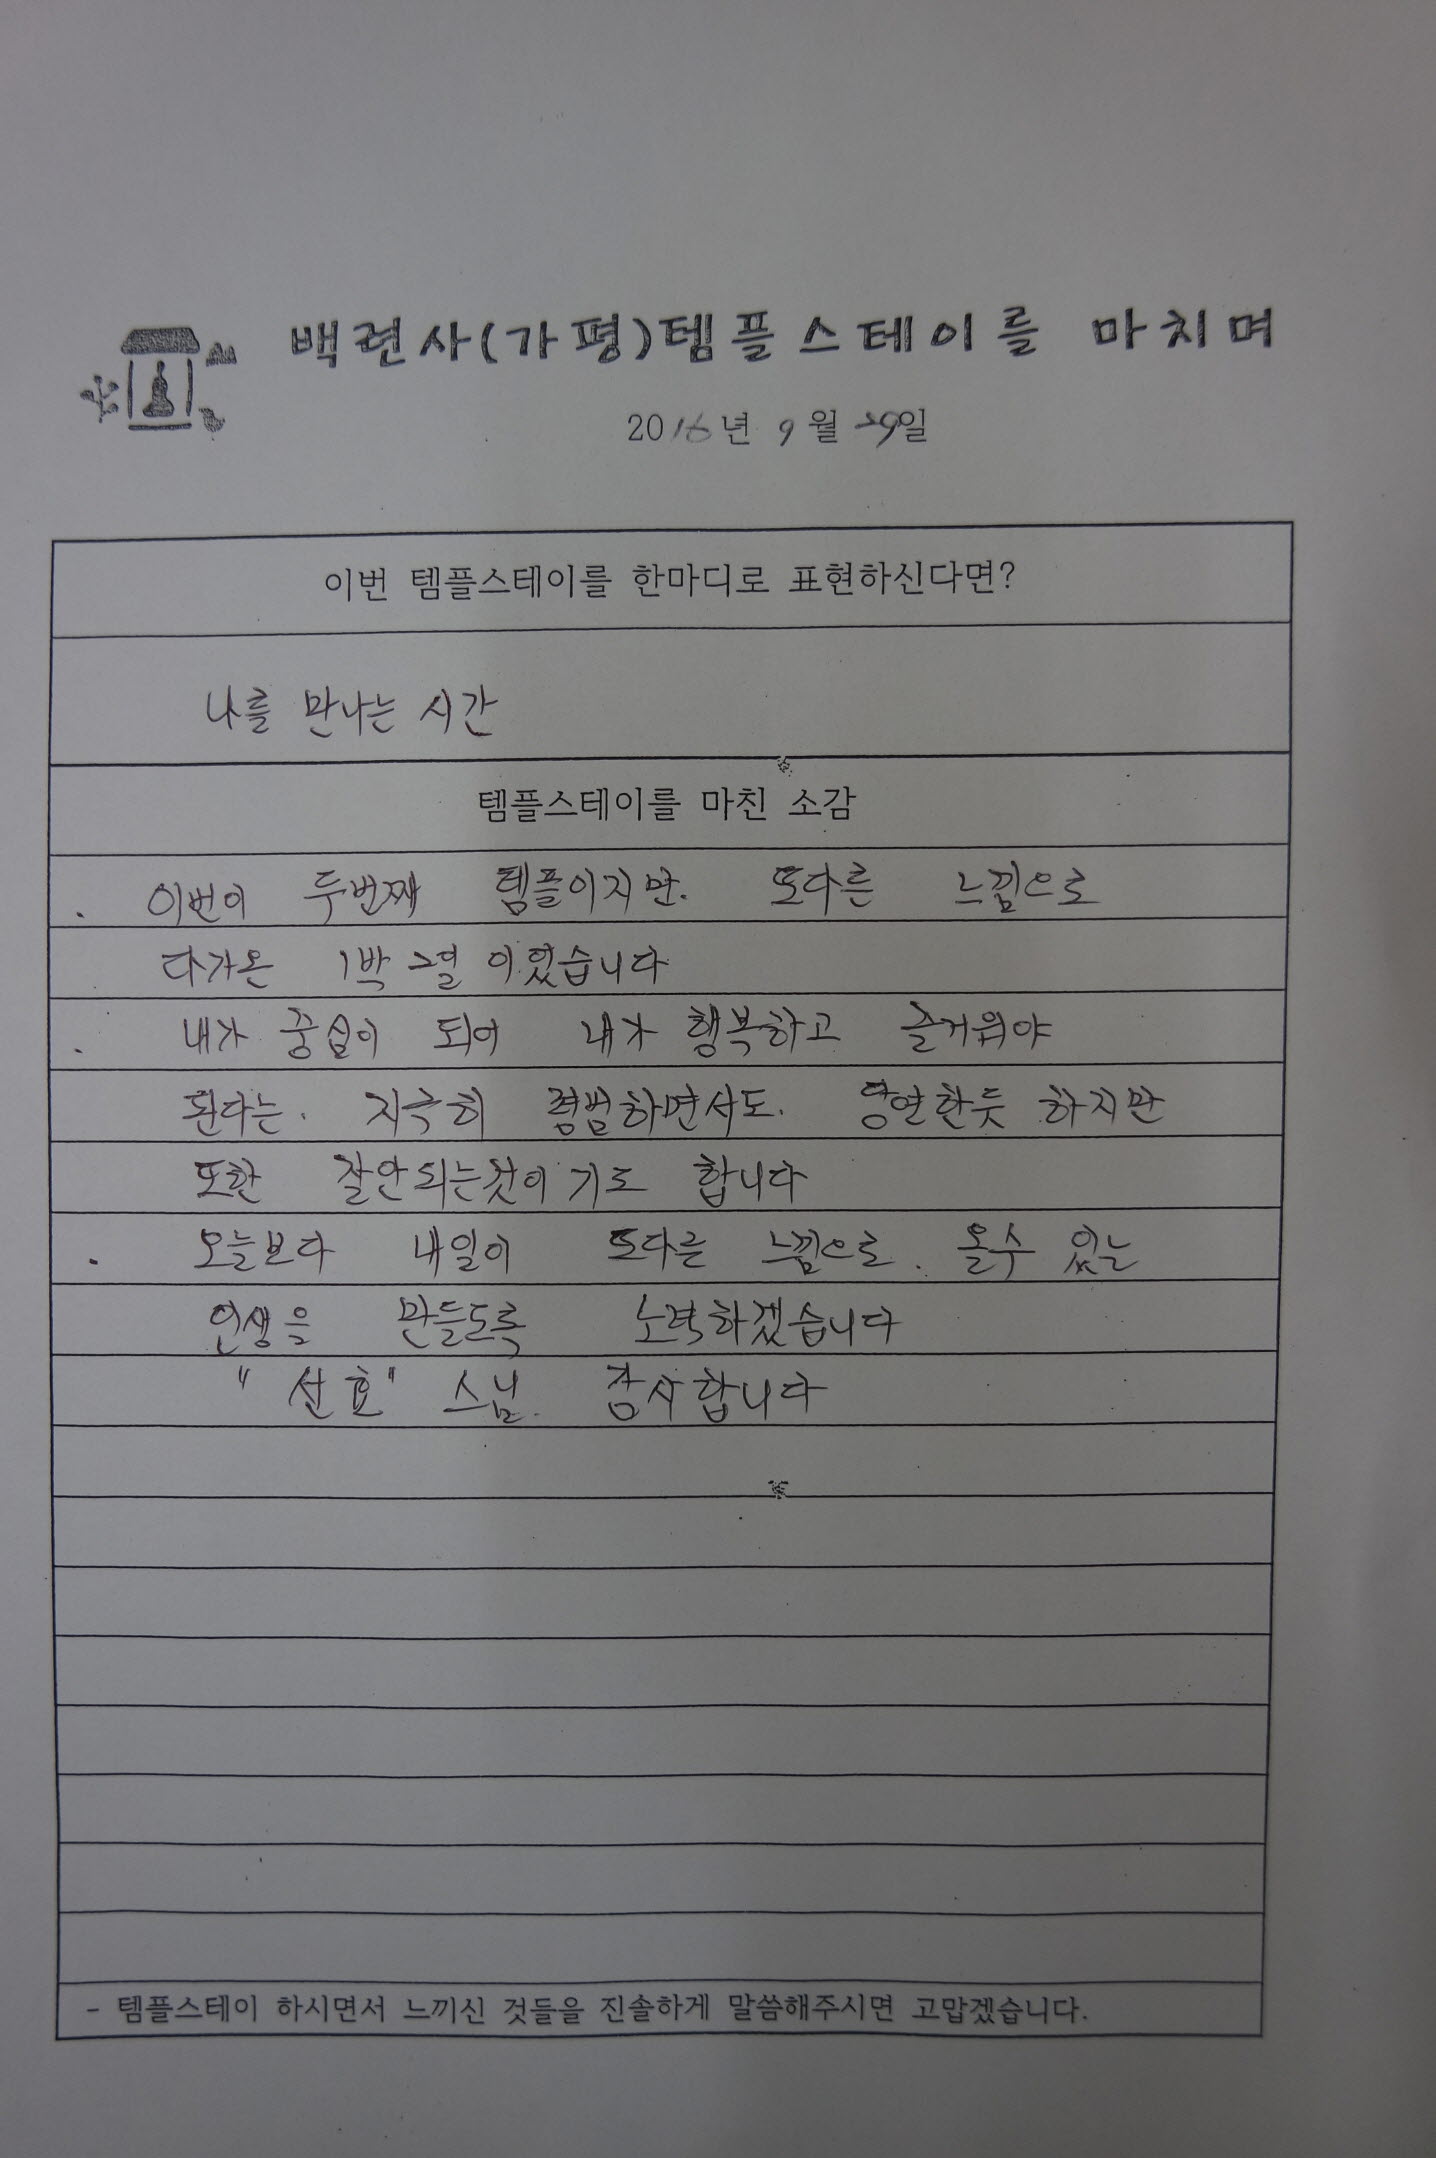 백련사(가평)템플스테이를 마치며
2016년 9월 29일
이번 템플스테이를 한마디로 표현하신다면?
나를 만나는 시간
템플스테이를 마친 소감
. 이번이 두번째 템플이지만. 또다른 느낌으로
다가온 1박 2일 이었습니다
. 내가 중심이 되어 내가 행복하고 즐거워야
된다는. 지극히 평범하면서도. 당연한듯 하지만
또한 잘안되는것이기도 합니다
. 오늘보다 내일이 또다른 느낌으로. 올수 있는
인생을 만들도록 노력하겠습니다
"선효" 스님. 감사합니다
- 템플스테이 하시면서 느끼신 것들을 진솔하게 말씀해주시면 고맙겠습니다.